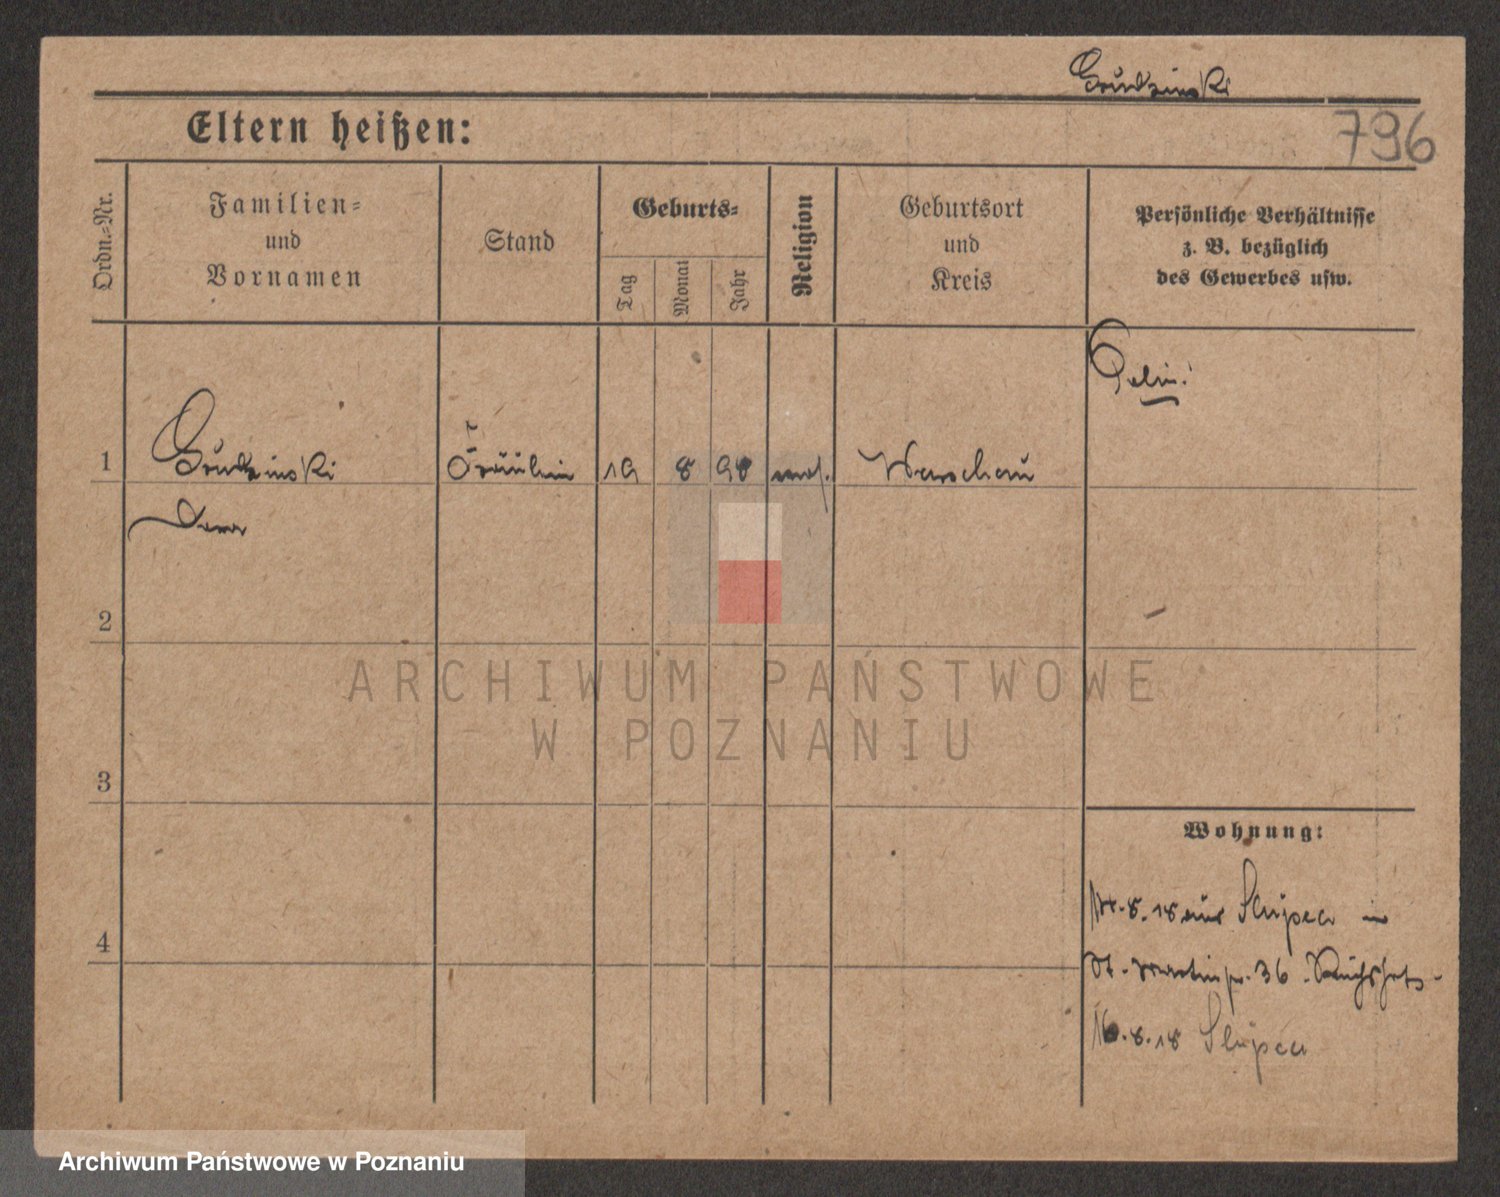 Grudzinski
796
Eltern heißen:
Ordn.-Nr.
Familien-
und
Vornamen
Stand
Geburts-
Tag
Monat
Jahr
Religion
Geburtsort
und
Kreis
Persönliche Verhältnisse
z. B. bezüglich
des Gewerbes usw.
1
Grudzinski
Fräulein
19
8
98
mos.
Warschau
2
3
4
Wohnung:
14.8.18 aus Slupca in
St. Martinstr. 36
16.8.18 Slupca
ARCHIWUM PAŃSTWOWE
W POZNANIU
Archiwum Państwowe w Poznaniu